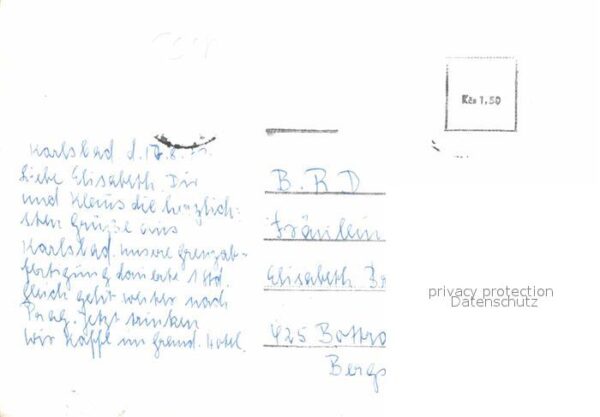 Kčs 1,50
Karlsbad d. 17.8.
Liebe Elisabeth Dir
und Klaus die herzlich-
sten Grüße aus
Karlsbad. unsere Grenzab-
fertigung dauerte 1 Std.
gleich geht weiter nach
Prag. Jetzt trinken
wir Kaffe im Grand. Hotel.
B.R.D
Fräulein
Elisabeth B
425 Bottro
Bergs
privacy protection
Datenschutz